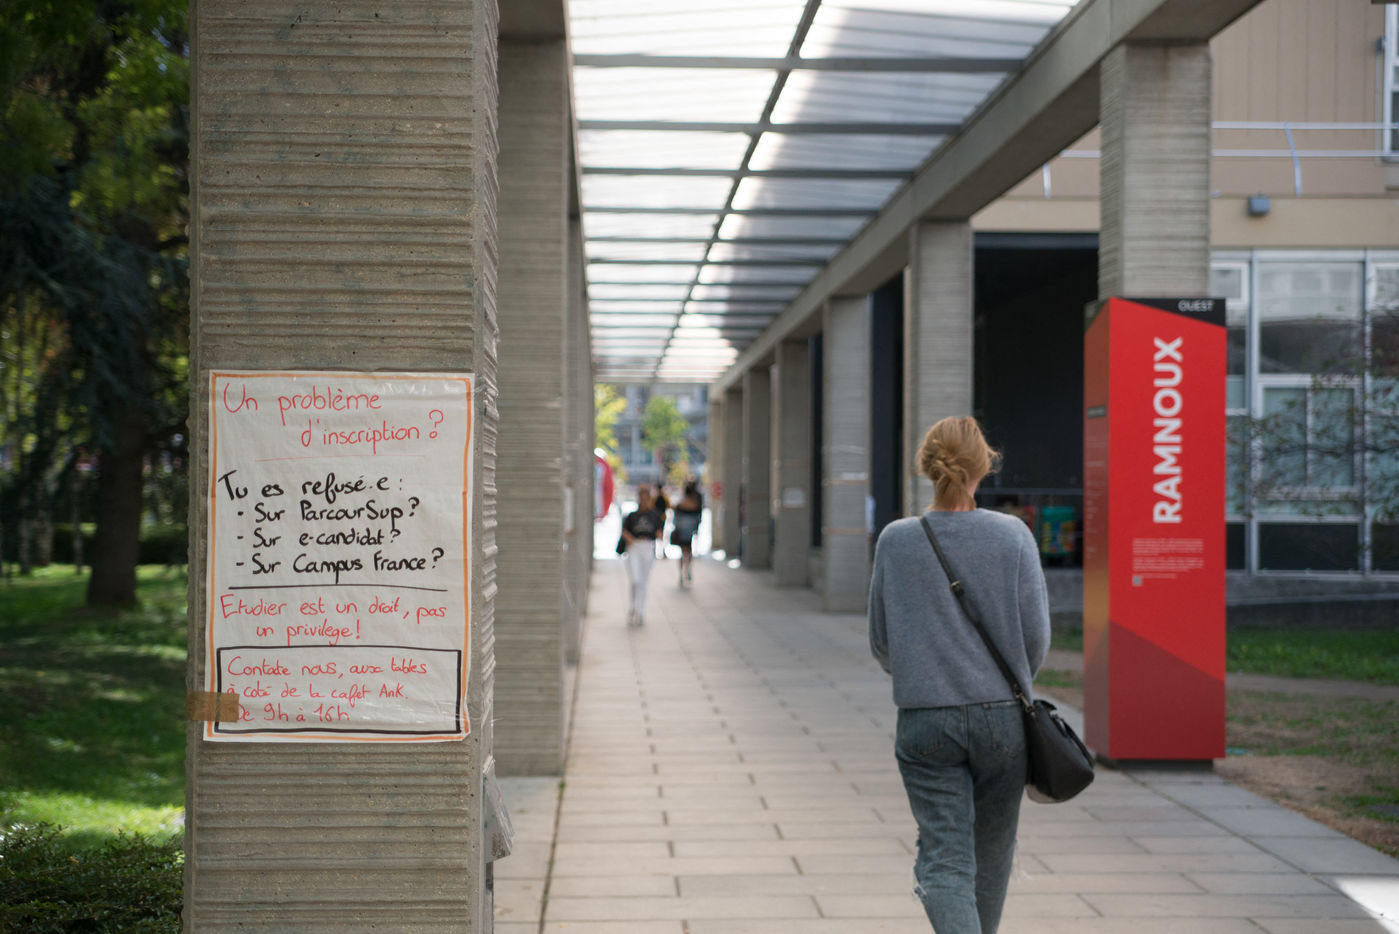 Un problème
d'inscription ?
Tu es refusé.e :
- Sur ParcourSup ?
- Sur e-candidat ?
- Sur Campus France ?
Etudier est un droit, pas
un privilège !
Contacte nous, aux tables
à coté de la cafèt Ank.
De 9h à 16h
OUEST
RAMNOUX